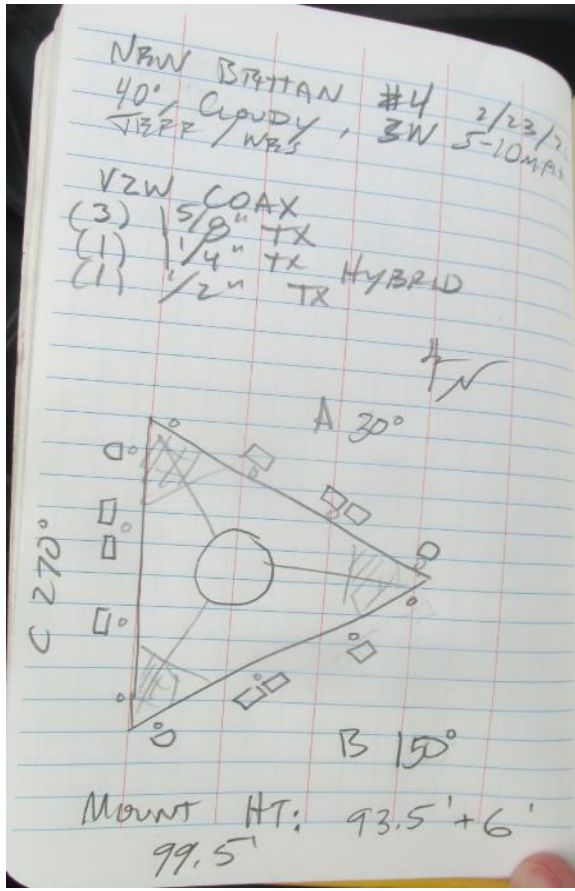 NEW BRITTAN #4 2/23/2
40°, CLOUDY, 3W 5-10MPH
JEFF / WES
VZW COAX
(3) 1 5/8" TX
(1) 1 1/4" TX HYBRID
(1) 1/2" TX
N
A 30°
C 270°
B 150°
MOUNT HT: 93.5' + 6'
99.5'